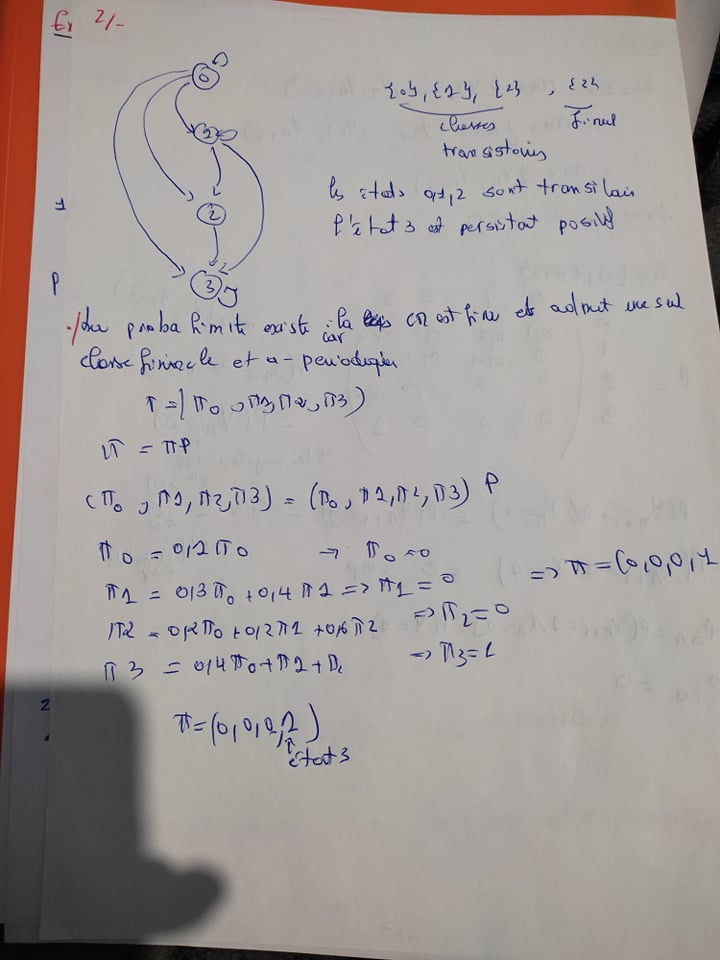 Ex 2/-
0
2
3
{0}, {1}, {2} , {2}
classes final
transistoires
ls états 0,1,2 sont transitais
l'état 3 est persistant positif
1
P
./ La proba limite existe car la CM est finie et admet une sul
classe finale et a-periodique
π = (π0, π1, π2, π3)
π = πP
(π0, π1, π2, π3) = (π0, π1, π2, π3) P
π0 = 0,2π0 → π0 = 0
π1 = 0,3π0 + 0,4π1 => π1 = 0 => π = (0,0,0,1
π2 = 0,2π0 + 0,2π1 + 0,6π2 => π2 = 0
π3 = 0,4π0 + π1 + => π3 = 1
2
π = (0,0,0,1)
↑
état 3